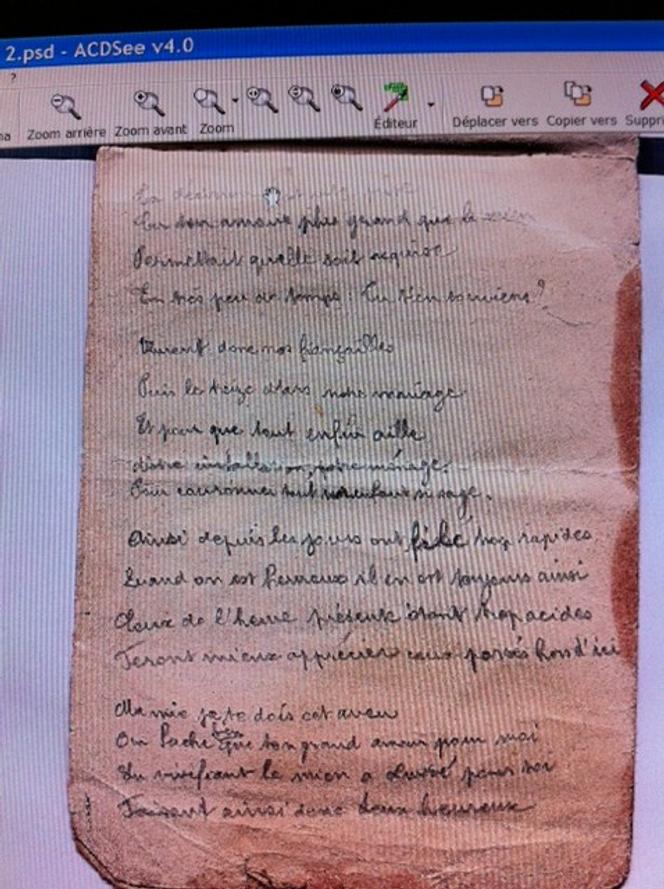 2.psd - ACDSee v4.0
?
Zoom arrière Zoom avant Zoom Éditeur Déplacer vers Copier vers Suppri
La
ton amour plus grand que le mien
Permettait qu'elle soit acquise
En très peu de temps. Tu t'en souviens?
Vinrent donc nos fiançailles
Puis le treize mars notre mariage
Et pour que tout enfin aille
notre installation, notre ménage.
Pour couronner tout enfant si sage.
Ainsi depuis les jours ont filé trop rapides
Quand on est heureux il en est toujours ainsi
Ceux de l'heure présente étant trop acides
Feront mieux apprécier ceux passés hors d'ici
Ma mie je te dois cet aveu
On Sache bien que ton grand amour pour moi
En vivifiant le mien a pour toi
Faisant ainsi donc deux heureux